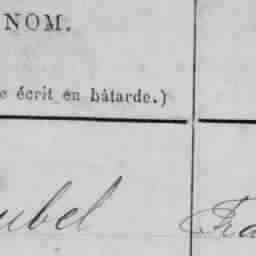 NOM.
e écrit en bâtarde.)
ubel